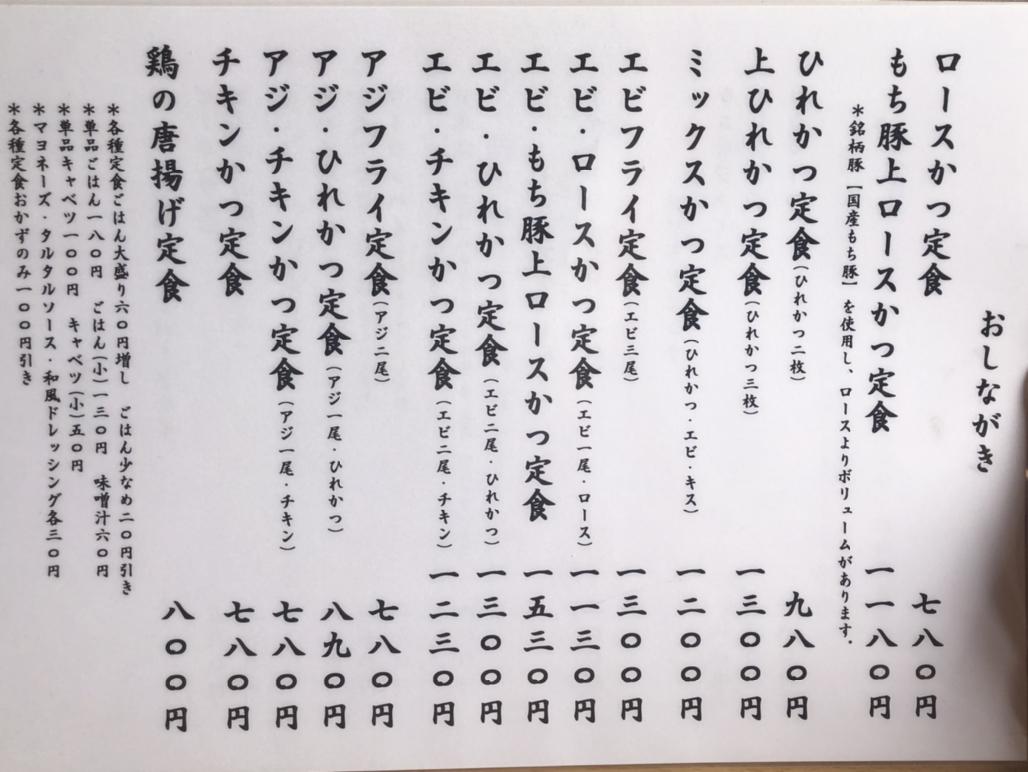 おしながき
ロースかつ定食 七八〇円
もち豚上ロースかつ定食 一一八〇円
＊銘柄豚［国産もち豚］を使用し、ロースよりボリュームがあります．
ひれかつ定食（ひれかつ二枚） 九八〇円
上ひれかつ定食（ひれかつ三枚） 一三〇〇円
ミックスかつ定食（ひれかつ・エビ・キス） 一二〇〇円
エビフライ定食（エビ三尾） 一三〇〇円
エビ・ロースかつ定食（エビ一尾・ロース） 一一三〇円
エビ・もち豚上ロースかつ定食 一五三〇円
エビ・ひれかつ定食（エビ二尾・ひれかつ） 一三〇〇円
エビ・チキンかつ定食（エビ二尾・チキン） 一二三〇円
アジフライ定食（アジ二尾） 七八〇円
アジ・ひれかつ定食（アジ一尾・ひれかつ） 八九〇円
アジ・チキンかつ定食（アジ一尾・チキン） 七八〇円
チキンかつ定食 七八〇円
鶏の唐揚げ定食 八〇〇円
＊各種定食ごはん大盛り六〇円増し ごはん少なめ二〇円引き
＊単品ごはん一八〇円 ごはん（小）一三〇円 味噌汁六〇円
＊単品キャベツ一〇〇円 キャベツ（小）五〇円
＊マヨネーズ・タルタルソース・和風ドレッシング各三〇円
＊各種定食おかずのみ一〇〇円引き